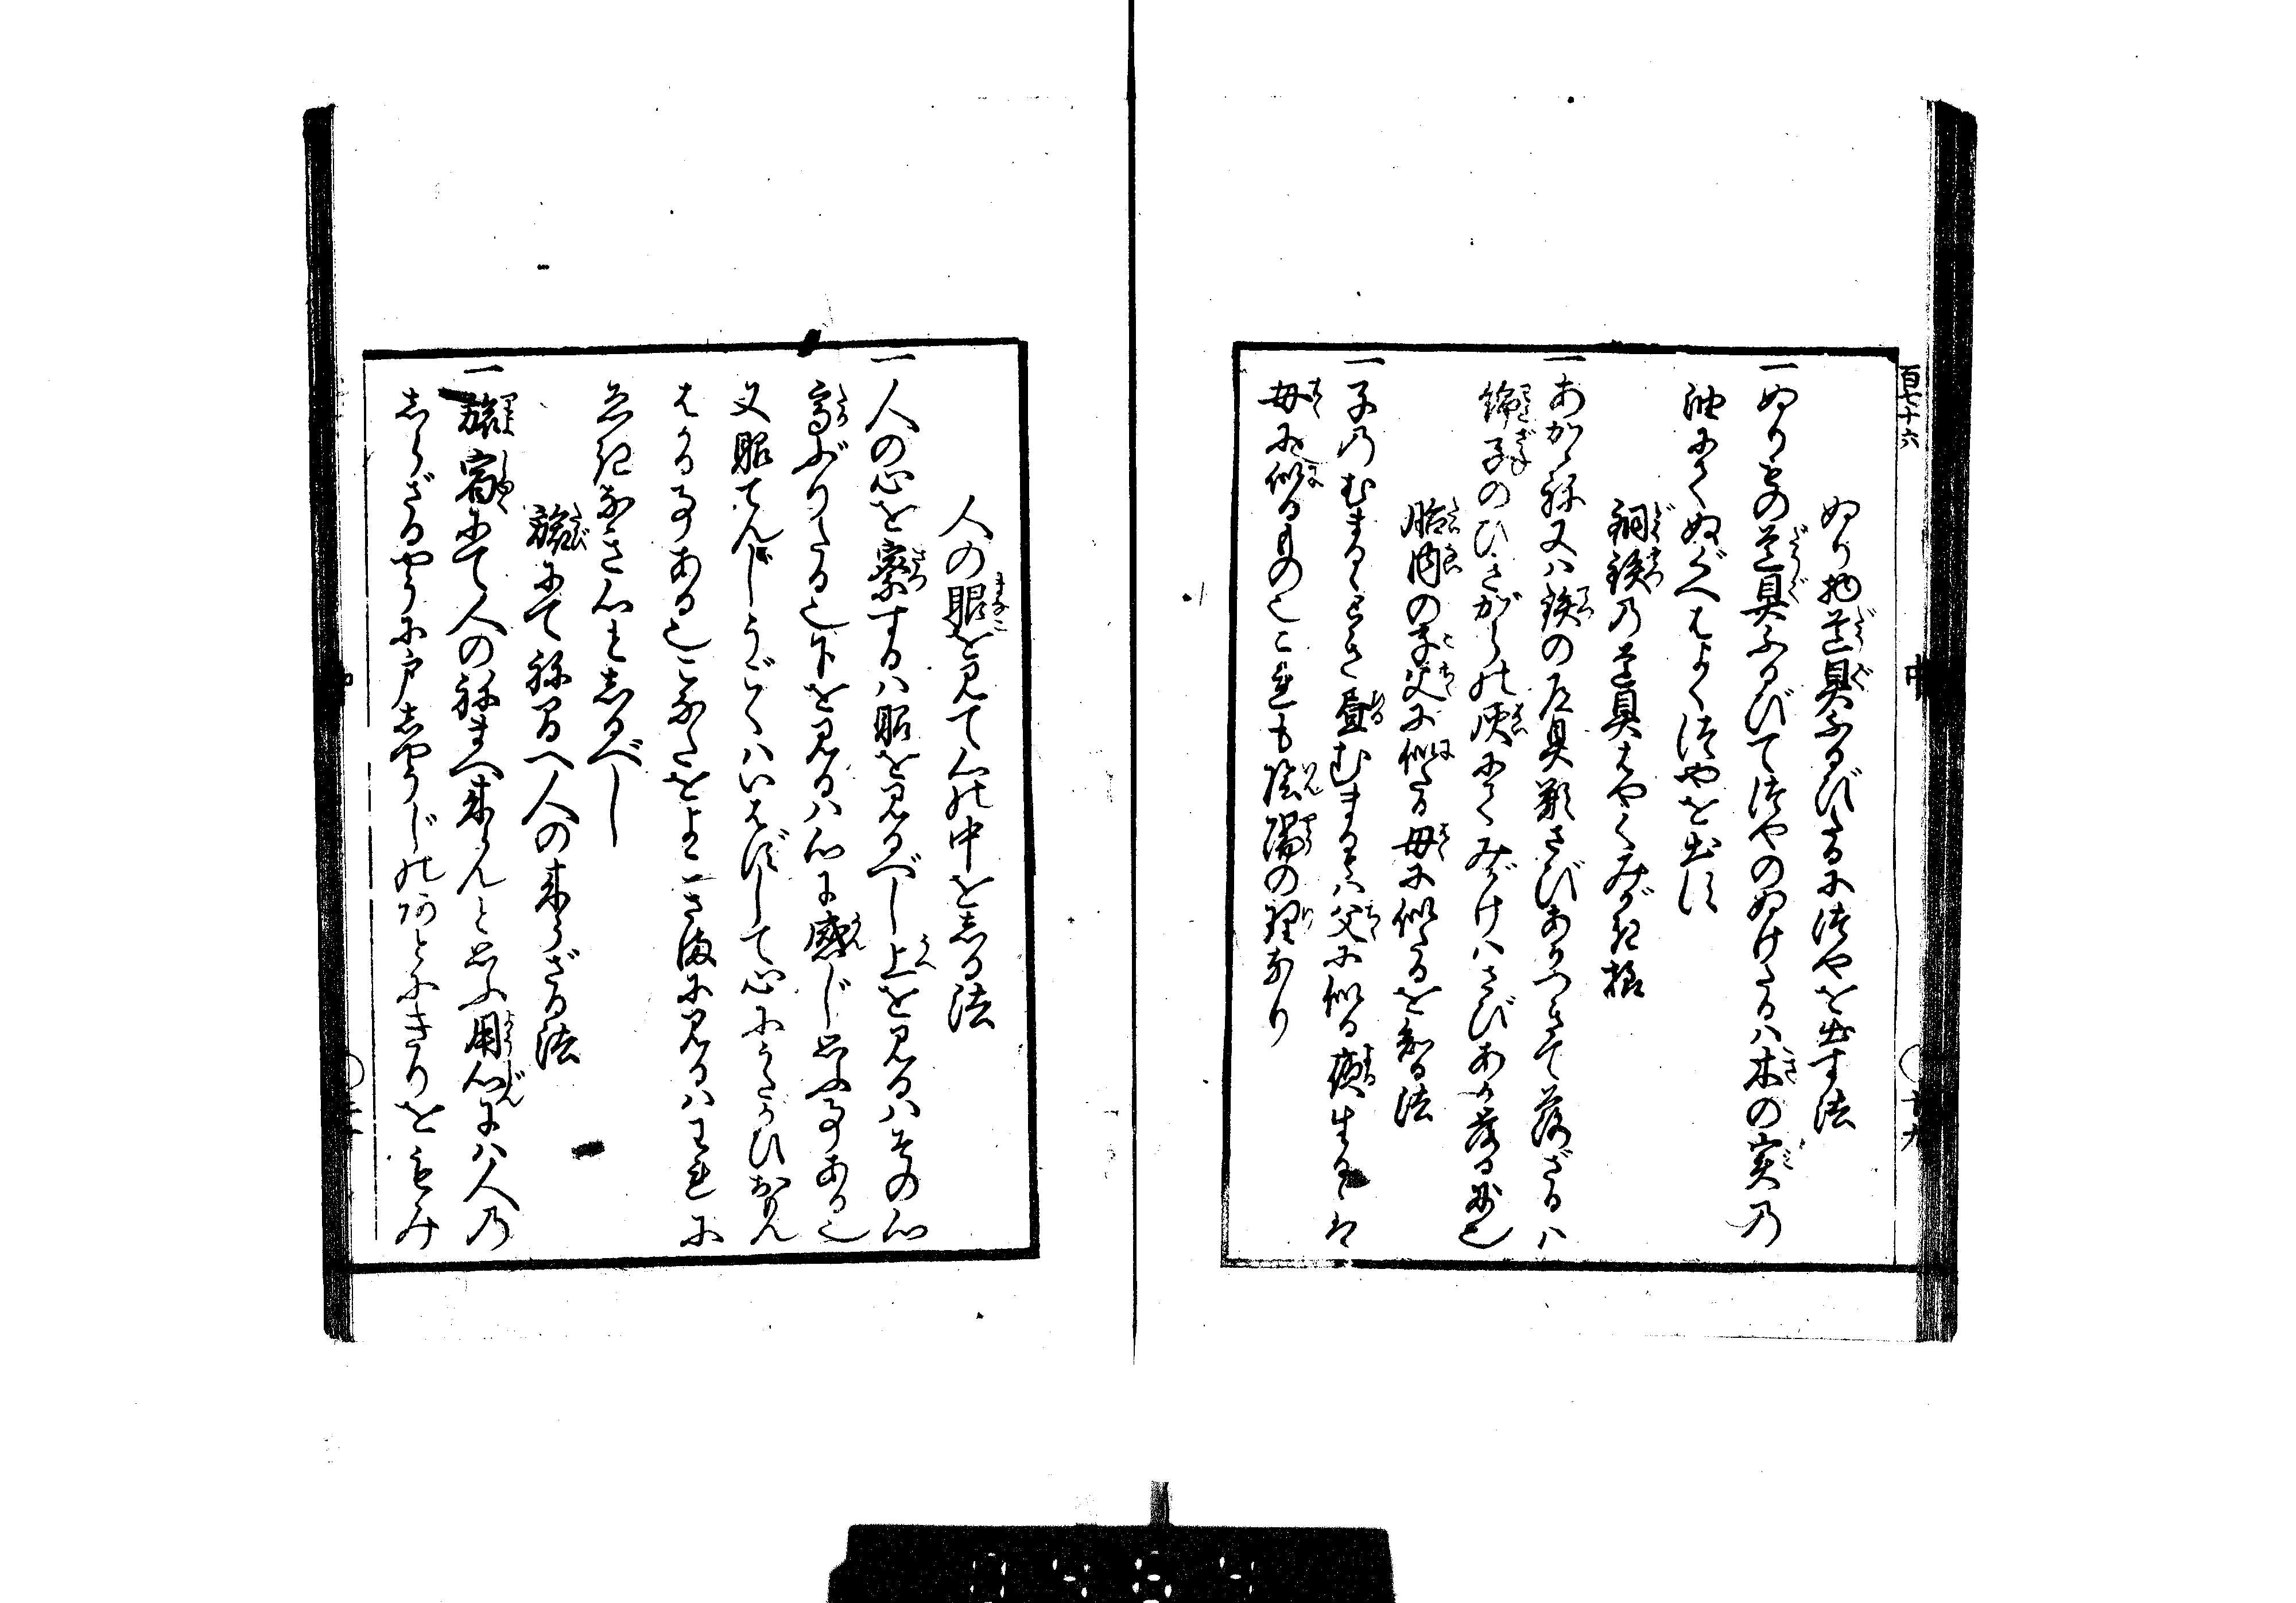 百七十六
中
ぬり物道具ふるびたるに つやを出す法
一ぬりもの道具ふるびてつやのぬけたるハ木の実乃
油にてぬぐへはよくつやを出す
銅鉄乃道具はやくみがき様
一あかゞね又ハ鉄の道具類さびありつきて落ざるハ
錦子のひさがらの灰にてみがけハさびあか落る妙也
胎内の子父に似たる母に似たるを知る法
一子乃むまるゝとき昼むまるれハ父に似る夜生るれは
母に似るもの也これも陰陽の理なり
人の眼を見て心の中をしる法
一人の心を察するハ眼を見るべし上を見るハその心
高ぶりたる也下を見るハ心に感じ思ふ事ある也
又眼てんじうごくハいはずして心にうたがひおもん
はかる事ある也こなたをよこさまに見るハわれに
ゑきなき心としるべし
旅にて祢間へ人の来らざる法
一旅宿にて人の祢まへ来らんと思ふ用心にハ人乃
しらざるやうに戸しやうじのあとにきりをもみ